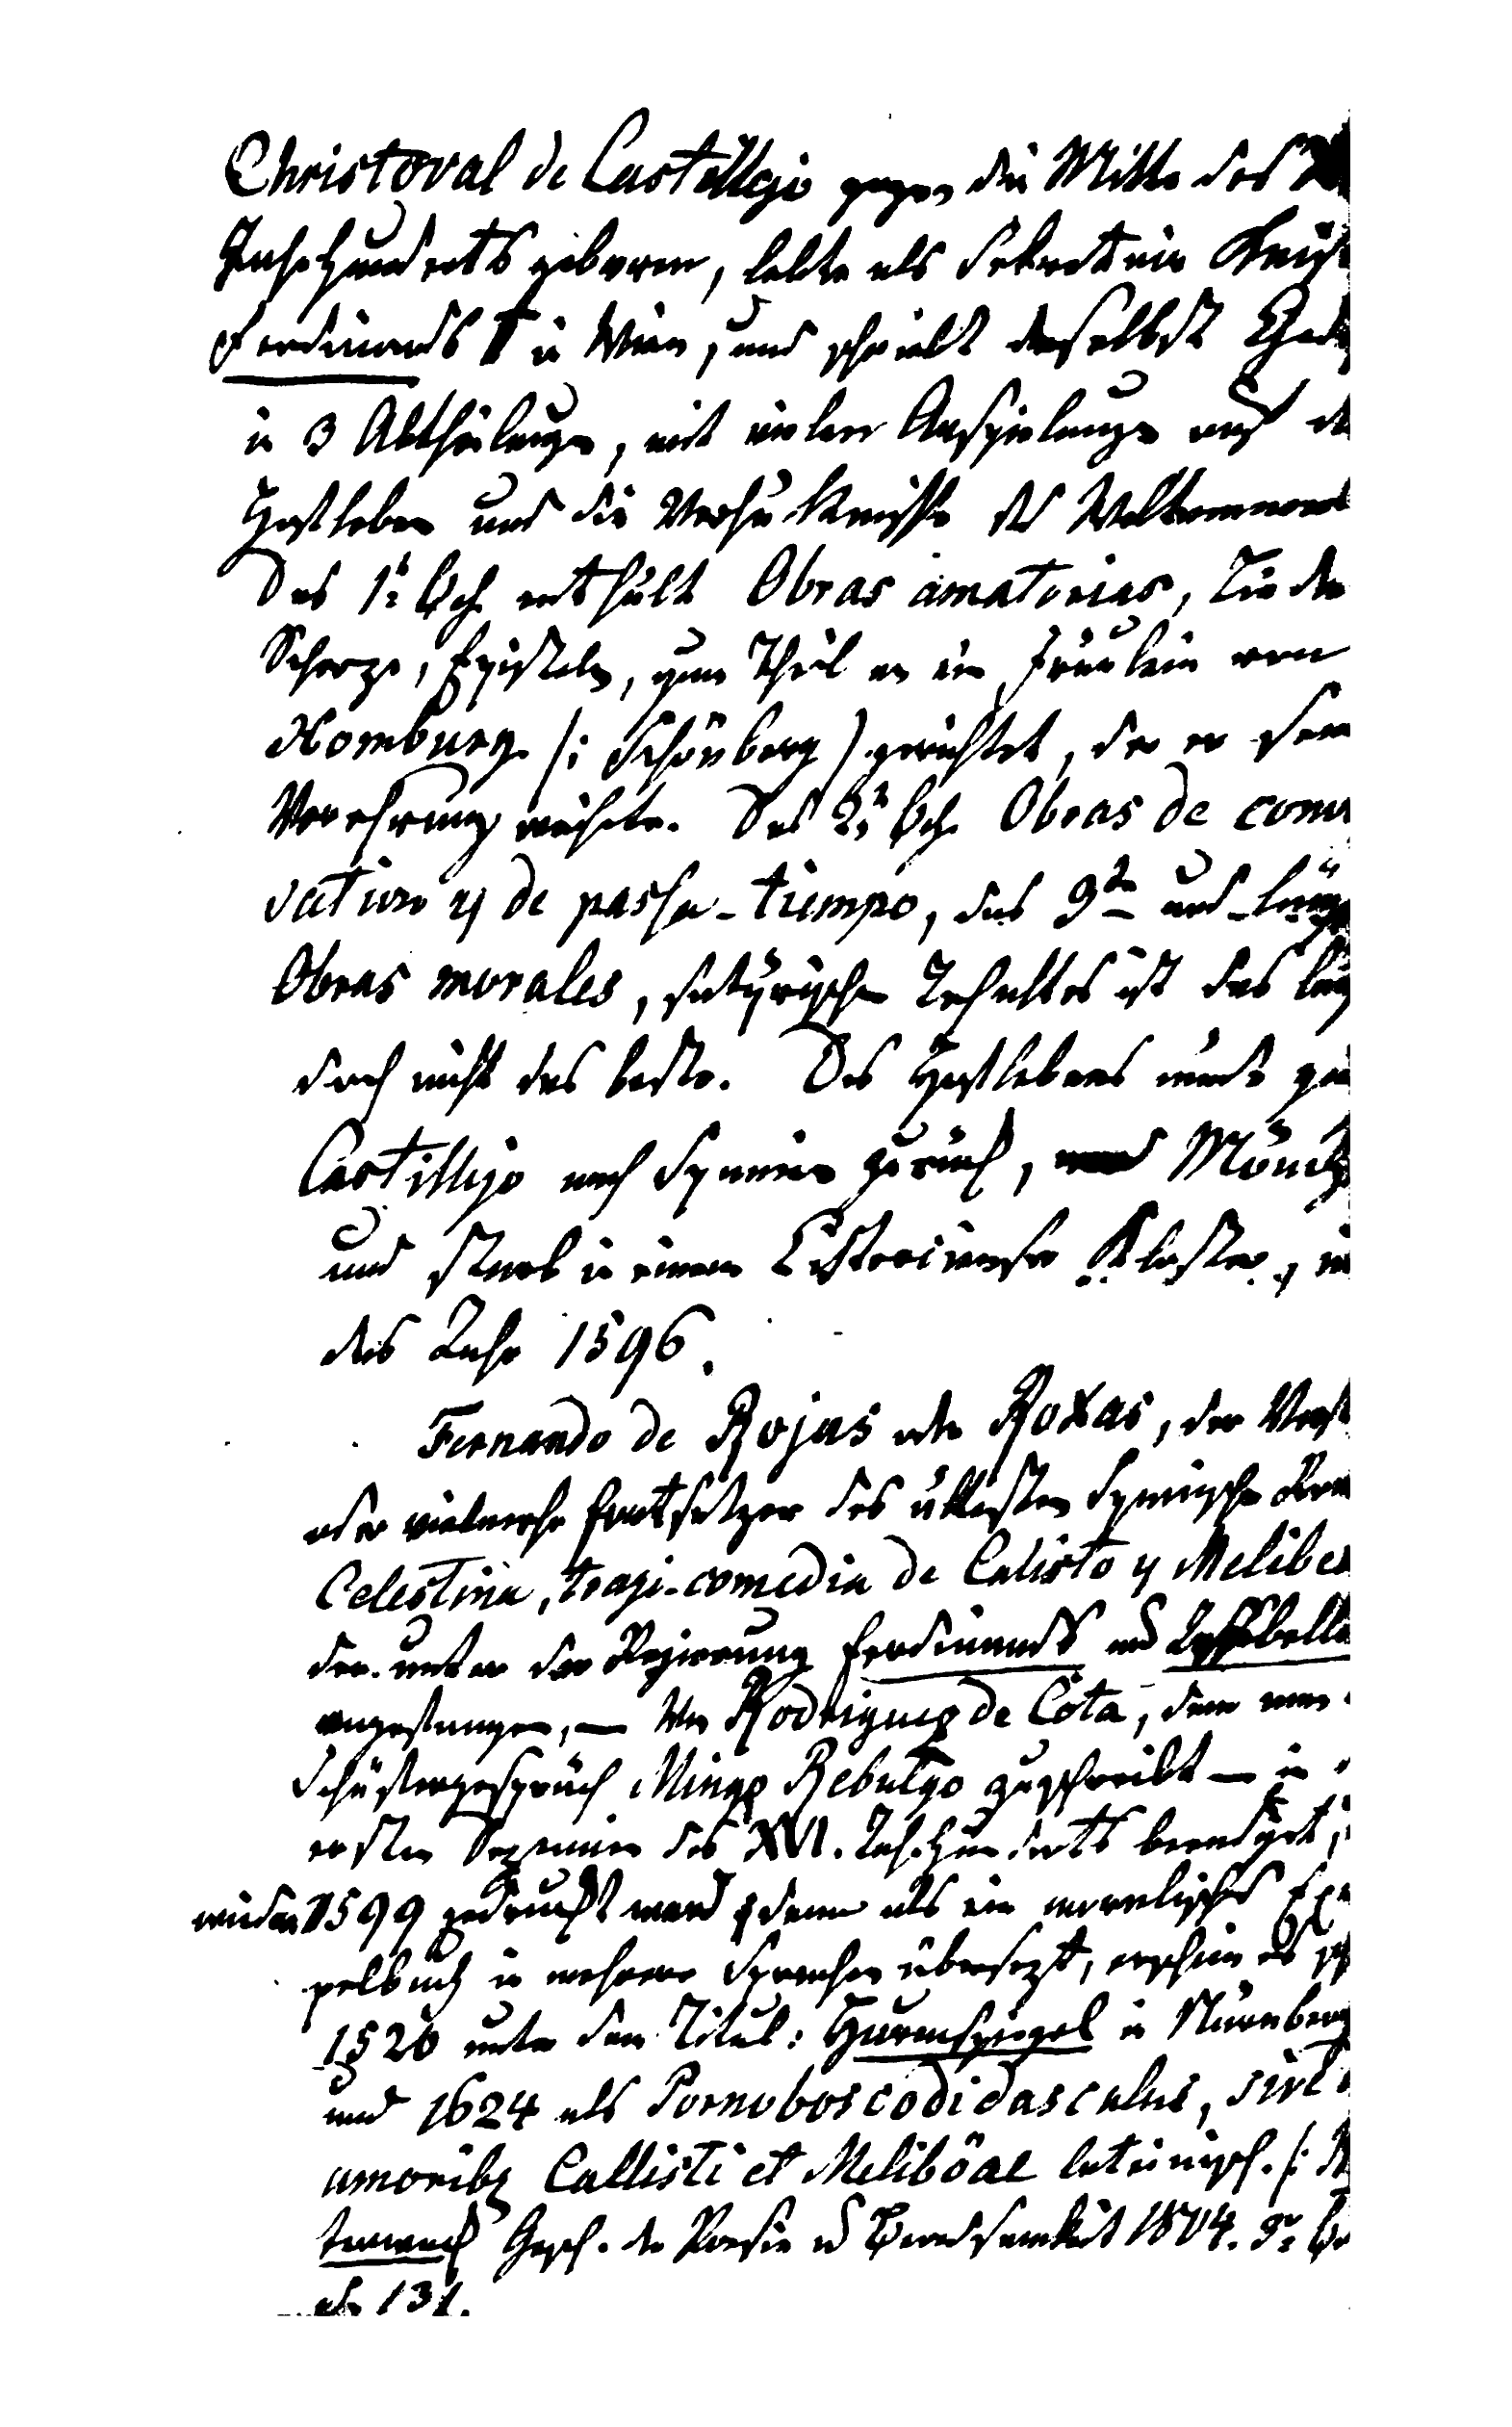 Christoval de Castillejo gegen die Mitte des
Jahrhunderts geboren, lebte als Sekretair Kais
Ferdinands I in Wien, und schrieb daselbst Gedi
in 3 Abtheilungen, mit vielen Anspielungen auf d
Hofleben und die Verhältnisse der
Das 1e Bch enthält Obras amatorias, Lieder
Scherze, Episteln, zum Theil an ein Fräulein von
Homburg (: Schönberg) gerichtet, der er sein
Verehrung weihete. Das 2e Bch. Obras de conv
sation y de passa-tiempo, das 3te und läng
Obras morales, satyrischen Inhaltes ist das län
doch nicht das beste. Des Hoflebens müde gi
Castillejo nach Spanien zurück, ward Mönch
und starb in einem Cistercienser Kloster, in
des Jahr 1596.
Fernando de Rojas oder Roxas, der Verf
oder vielmehr Fortsetzer des ältesten Spanischen Dra
Celestina, tragi-comedia de Calisto y Melibea
der unter der Regierung Ferdinands und Isabella
angefangen, — Von Rodriguez de Cota, dem man
Schäfergespräch Mingo Rebulgo zuschreibt — in
ersten Dezennien des XVI. Jahrhunderts beendigt,
wieder 1599 gedruckt ward denn als ein moralisches Exe
pelbuch in mehrere Sprachen übersezt, erschien es sch
1520 unter dem Titul: Hurenspiegel in Nürnberg
und 1624 als Pornoboscodidascalus, sive
amoribq Callisti et Meliböae lateinisch. (:
terweck Gesch. der Poesie u Beredsamkeit 1804. 3r B
131.